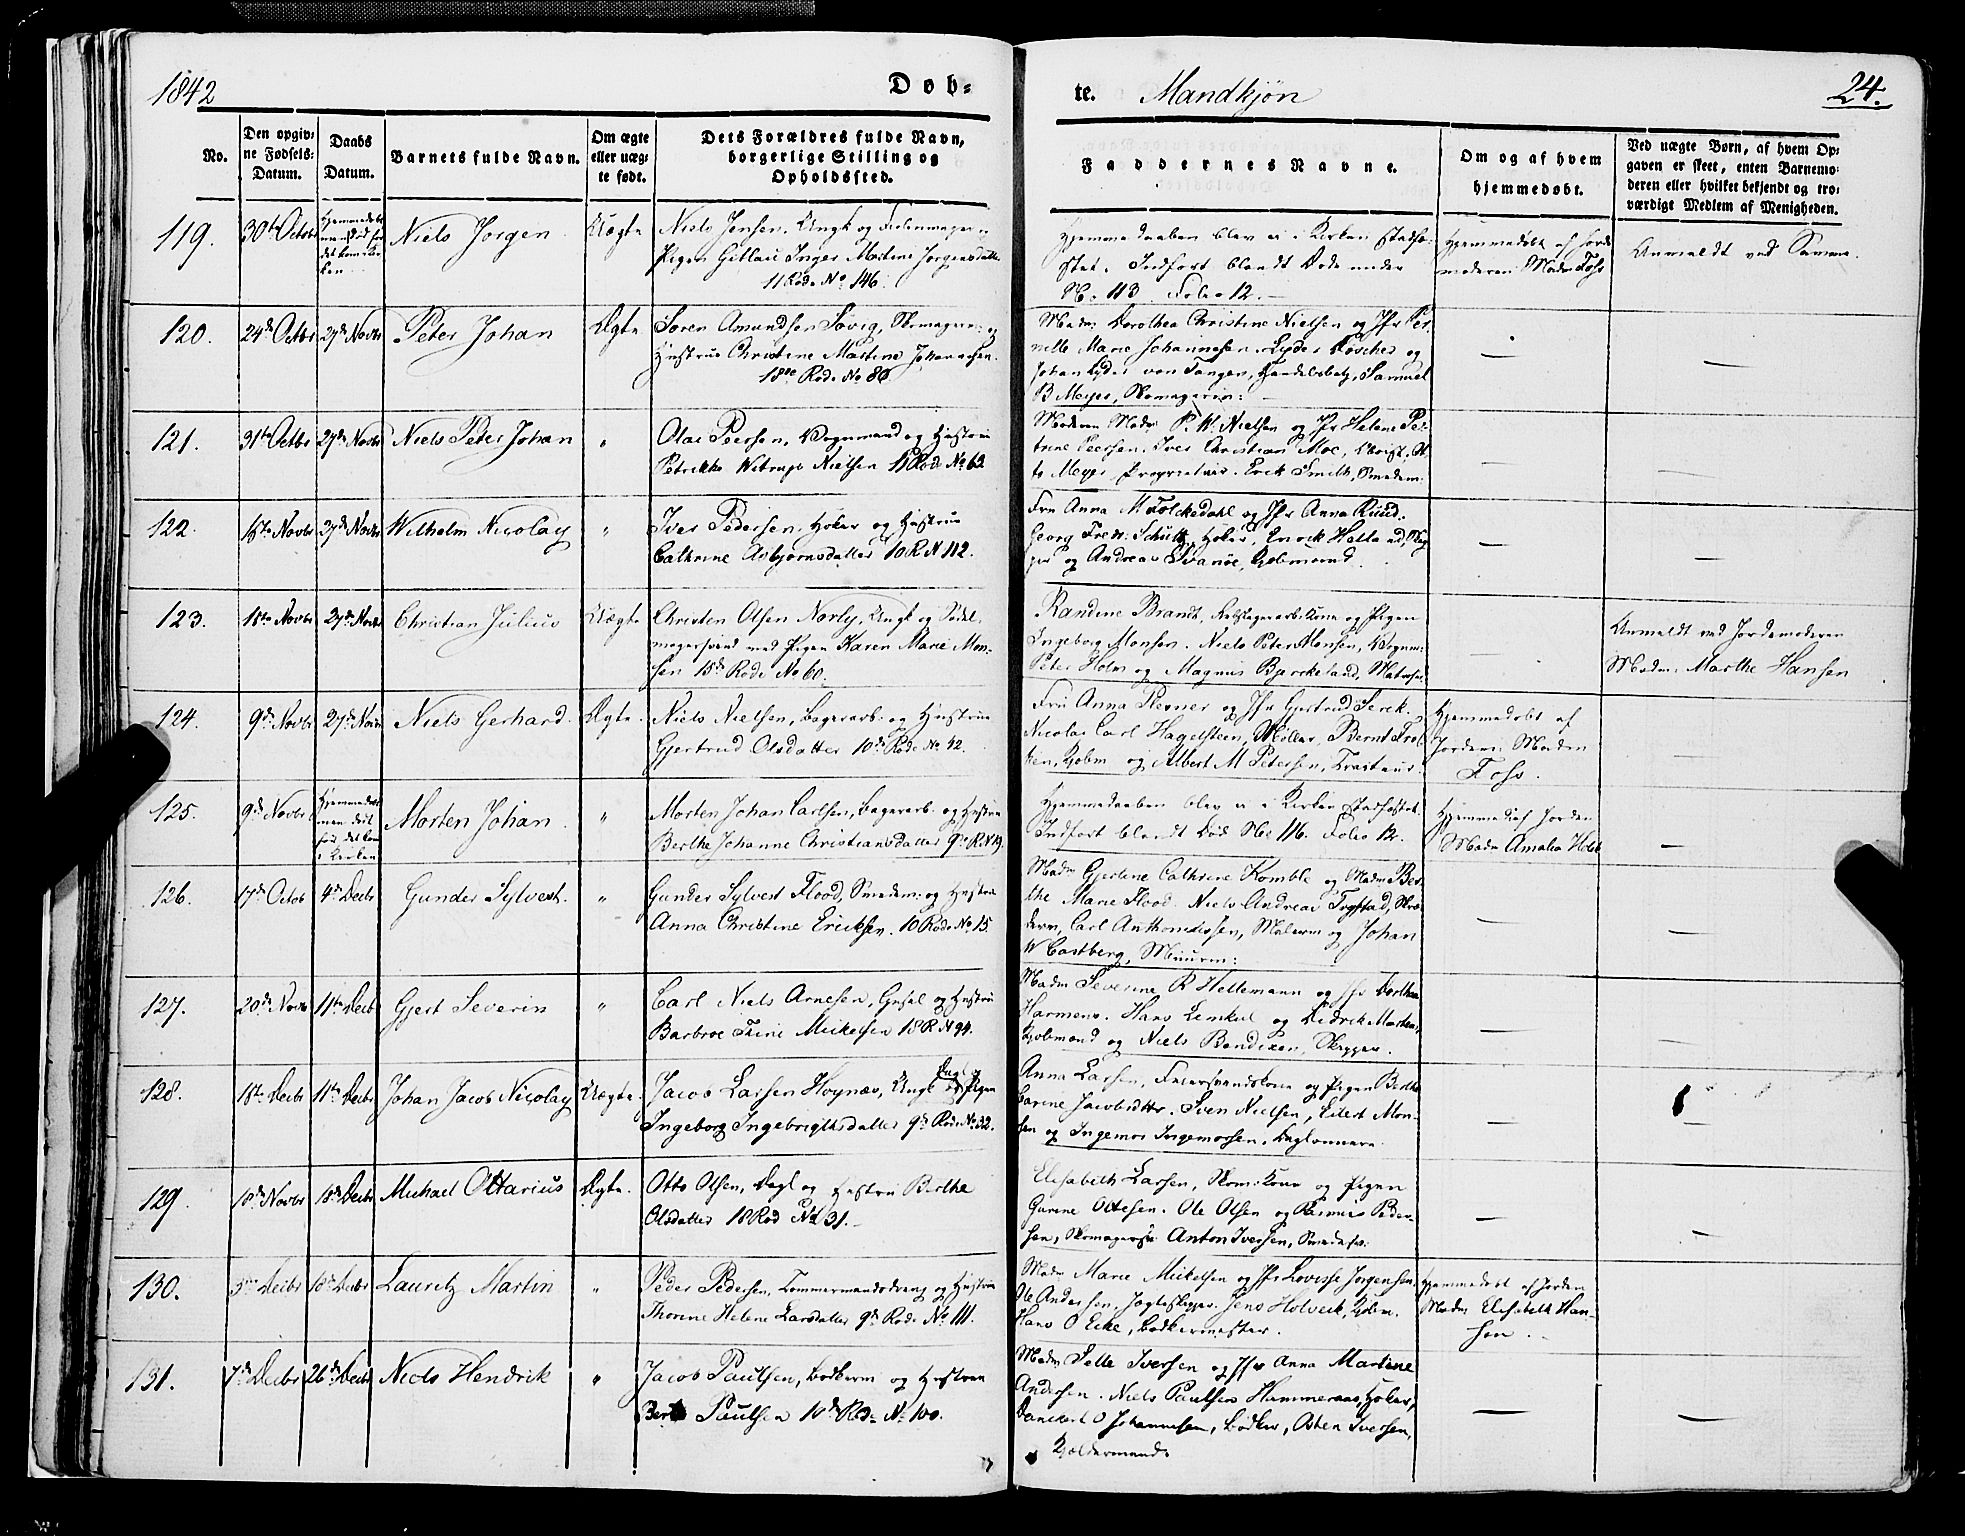 1842
Døb-
te. Mandkjøn
24.
No.
Den opgiv-
ne Fødsels-
Datum.
Daabs
Datum.
Barnets fulde Navn.
Om ægte
eller uæg-
te født.
Dets Forældres fulde Navn,
borgerlige Stilling og
Opholdssted.
Faddernes Navne.
Om og af hvem
hjemmedøbt.
Ved uægte Børn, af hvem Op-
gaven er skeet, enten Barnemo-
deren eller hvilket bekjendt og tro-
værdigt Medlem af Menigheden.
119. 30te Octobr
Hjemmedøbt
men død før
det kom i Kir-
ken
Niels Jörgen Uægte
Niels Jensen, Ungk og
Pigen Inger Martine Jörgensdatter
11 Rode No 146.
Hjemmedaaben blev ei i Kirken stadfæ-
stet. Indfört blandt Döde under
No. 113 Folio 12.
Hjemmedöbt af Jorde
moderen Madm Foss
Anmeldt ved Samme.
120. 24de Octbr 27de Novbr Peter Johan Ægte
Sören Amundsen Sövig, Skomagerm: og
Hustrue Christine Martine Johannesen.
18de Rode No 86
Madm Dorothea Christine Nielsen og Jfr Per-
nelle Marie Johannesen. Lyder Löscher og
Johan Lyder von Tangen, Handelsbetj, Samuel
B Meyer, Skomagerm:
121. 31te Octbr 27de Novbr Niels Peter Johan "
Olai Peersen, Vognmand og Hustrue
Petrikke Nielsen 11 Rode No 63
Moderen Madm P. W. Nielsen og Jfr Helene Pe-
trine Peersen. Iver Christian Moe,
Meyer Proprietair. Erik Smith, Smedem.
122. 15te Novbr 27de Novbr Wilhelm Nicolay "
Iver Pedersen, Höker og Hustrue
Cathrine Asbjörnsdatter 10 R N 112.
Fru Anna M Folckedahl og Jfr Anna Ruud.
Georg Fredr: Schütt, Höker,
og Andreas Svanöe, Kjöbmand.
123. 18de Novbr 27de Novbr Christian Julius Uægte
Christen Olsen Norly, Ungk og
magersvend med Pigen Karen Marie Mon-
sen 15de Rode No 60.
Randine Brandt, Kone og Pigen
Ingeborg Monsen. Niels Peter Monsen, Vognm:
Peter Holm og Magnus Bjerkeland, Matroser
Anmeldt ved Jordemoderen
Madm: Marthe Hansen
124. 9de Novbr 27de Novbr Niels Gerhard Ægte
Niels Nielsen, Bagerarb. og Hustrue
Gjertrud Olsdatter 10de Rode No 42.
Fru Anna Plevner og Jfr Gjertrud Serck.
Nicolai Carl Hagelsteen, Möller, Bernt
Kjöbm og Albert M Petersen,
Hjemmedöbt af
Jordem: Madm
Foss.
125. 9de Novbr
Hjemmedöbt
men död
för det kom
i Kirken
Morten Johan "
Morten Johan Carlsen, Bagerarb. og Hustrue
Berthe Johanne Christiansdatter 9de R N 19
Hjemmedaaben blev ei i Kirken stadfæstet.
Indfört blandt Död No 116. Folio 12.
Hjemmed: af Jordem
Madm Amalia Holck
126. 17de Octob 4de Decbr Gunder Sylvest. "
Gunder Sylvest Flood, Smedem: og Hustrue
Anna Christine Ericksen. 10 Rode No 15.
Madm Gjertine Cathrine Komble og Madm Ber-
the Marie Flood. Niels Andreas Tvedtad, Skræ-
derm, Carl Anthonissen, Malerm og Johan
W Castberg, Muurm:
127. 20de Novbr 11te Decbr Gjert Severin "
Carl Niels Arnesen, og Hustrue
Barbroe Thine Mickelsen 18 R N 94.
Madm Severine R Hellemann og Jfr Dorthea
Harmens. Hans Lemkul og Didrik Martens,
Kjöbmænd og Niels Bendixen, Skipper.
128. 18de Decbr 11te Decbr Johan Jacob Nicolay Uægte
Jacob Larsen Höynæs, Ungk og Pigen
Ingeborg Ingebrigthsdatter 9de Rode No 32.
Anna Larsen, Kone og Pigen Berthe
Carine Jacobsdttr. Sven Nielsen, Eilert Mon-
sen og Ingemor Ingemorsen, Daglönnere.
129. 18de Novbr 18de Decbr Michael Ottarius Ægte.
Otto Olsen, Dagl og Hustru Berthe
Olsdatter 18 Rod No 31.
Elisabeth Larsen, Skom: Kone og Pigen
Gurine Ottesen. Ole Olsen og Rasmus Peder-
sen, Skomagersv: Anton Iversen, Smedesv:
130. 3die Decbr 18de Decbr Lauritz Martin "
Peder Pedersen, Tömmermandsdreng og Hustrue
Thorine Helene Larsdatter 9de Rode No 111.
Madm Marie Mickelsen og Jfr Lovisse Jörgensen,
Ole Andersen, Jagteskipper. Jens Holbeck, Kjöbm.
Hans O Eike, Bödkermester.
Hjemmedöbt af Jordem
Madm Elisabeth Han-
sen.
131. 7de Decbr 26de Decbr Niels Hendrik "
Jacob Paulsen, Bödkerm og Hustrue
Paulsen 10de Rode No 100.
Madm Pelle Iversen og Jfr Anna Martine
Andersen. Niels Paulsen Hammernæs, Höker,
Danckert O Johannesen, Bödker, Osten Iversen,
Kjeldermand.